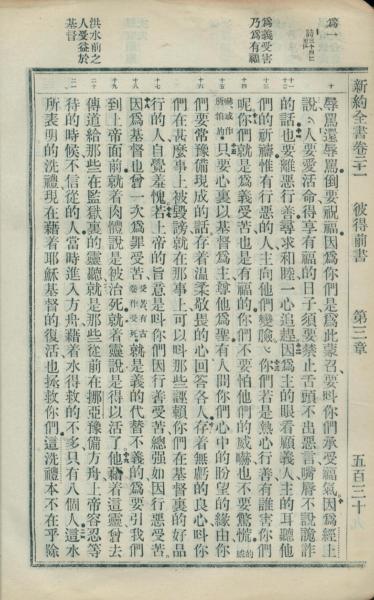 新約全書卷二十一 彼得前書 第三章 五百三十九
爲一
爲義受害
乃爲有福
洪水前之
人受益於
基督
辱罵還辱罵倒要祝福因爲你們是爲此蒙召要叫你們承受福氣因爲經上
說人要愛活命得享有福的日子須要禁止舌頭不出惡言嘴唇不說詭詐
的話也要離惡行善尋求和睦一心追趕因爲主的眼看顧義人主的耳聽他
們的祈禱惟有行惡的人主向他們變臉你們若是熱心行善有誰害你們
呢你們就是爲義受苦也是有福的你們不要怕他們的威嚇也不要驚慌
所怕的只要心裏以基督爲主尊他爲聖有人問你們心中的盼望的緣由你
們要常豫備現成的話存着溫柔敬畏的心回答各人存着無虧的良心叫你
們在甚麽事上被毀謗就在那事上可以叫那些誣賴你們在基督裏的好品
行的人自覺羞愧若上帝的旨意是叫你們因行善受苦總強如因行惡受苦
因爲基督也曾一次爲罪受苦受苦有古卷作受死就是義的代替不義的爲要引我們
到上帝面前就着肉體說是被治死就着靈說是得以活了他藉着這靈曾去
傳道給那些在監獄裏的靈聽就是那些從前在挪亞豫備方舟上帝容忍等
待的時候不信從的人當時進入方舟藉着水得救的不多只有八個人這水
所表明的洗禮現在藉着耶穌基督的復活也拯救你們這洗禮本不在乎除